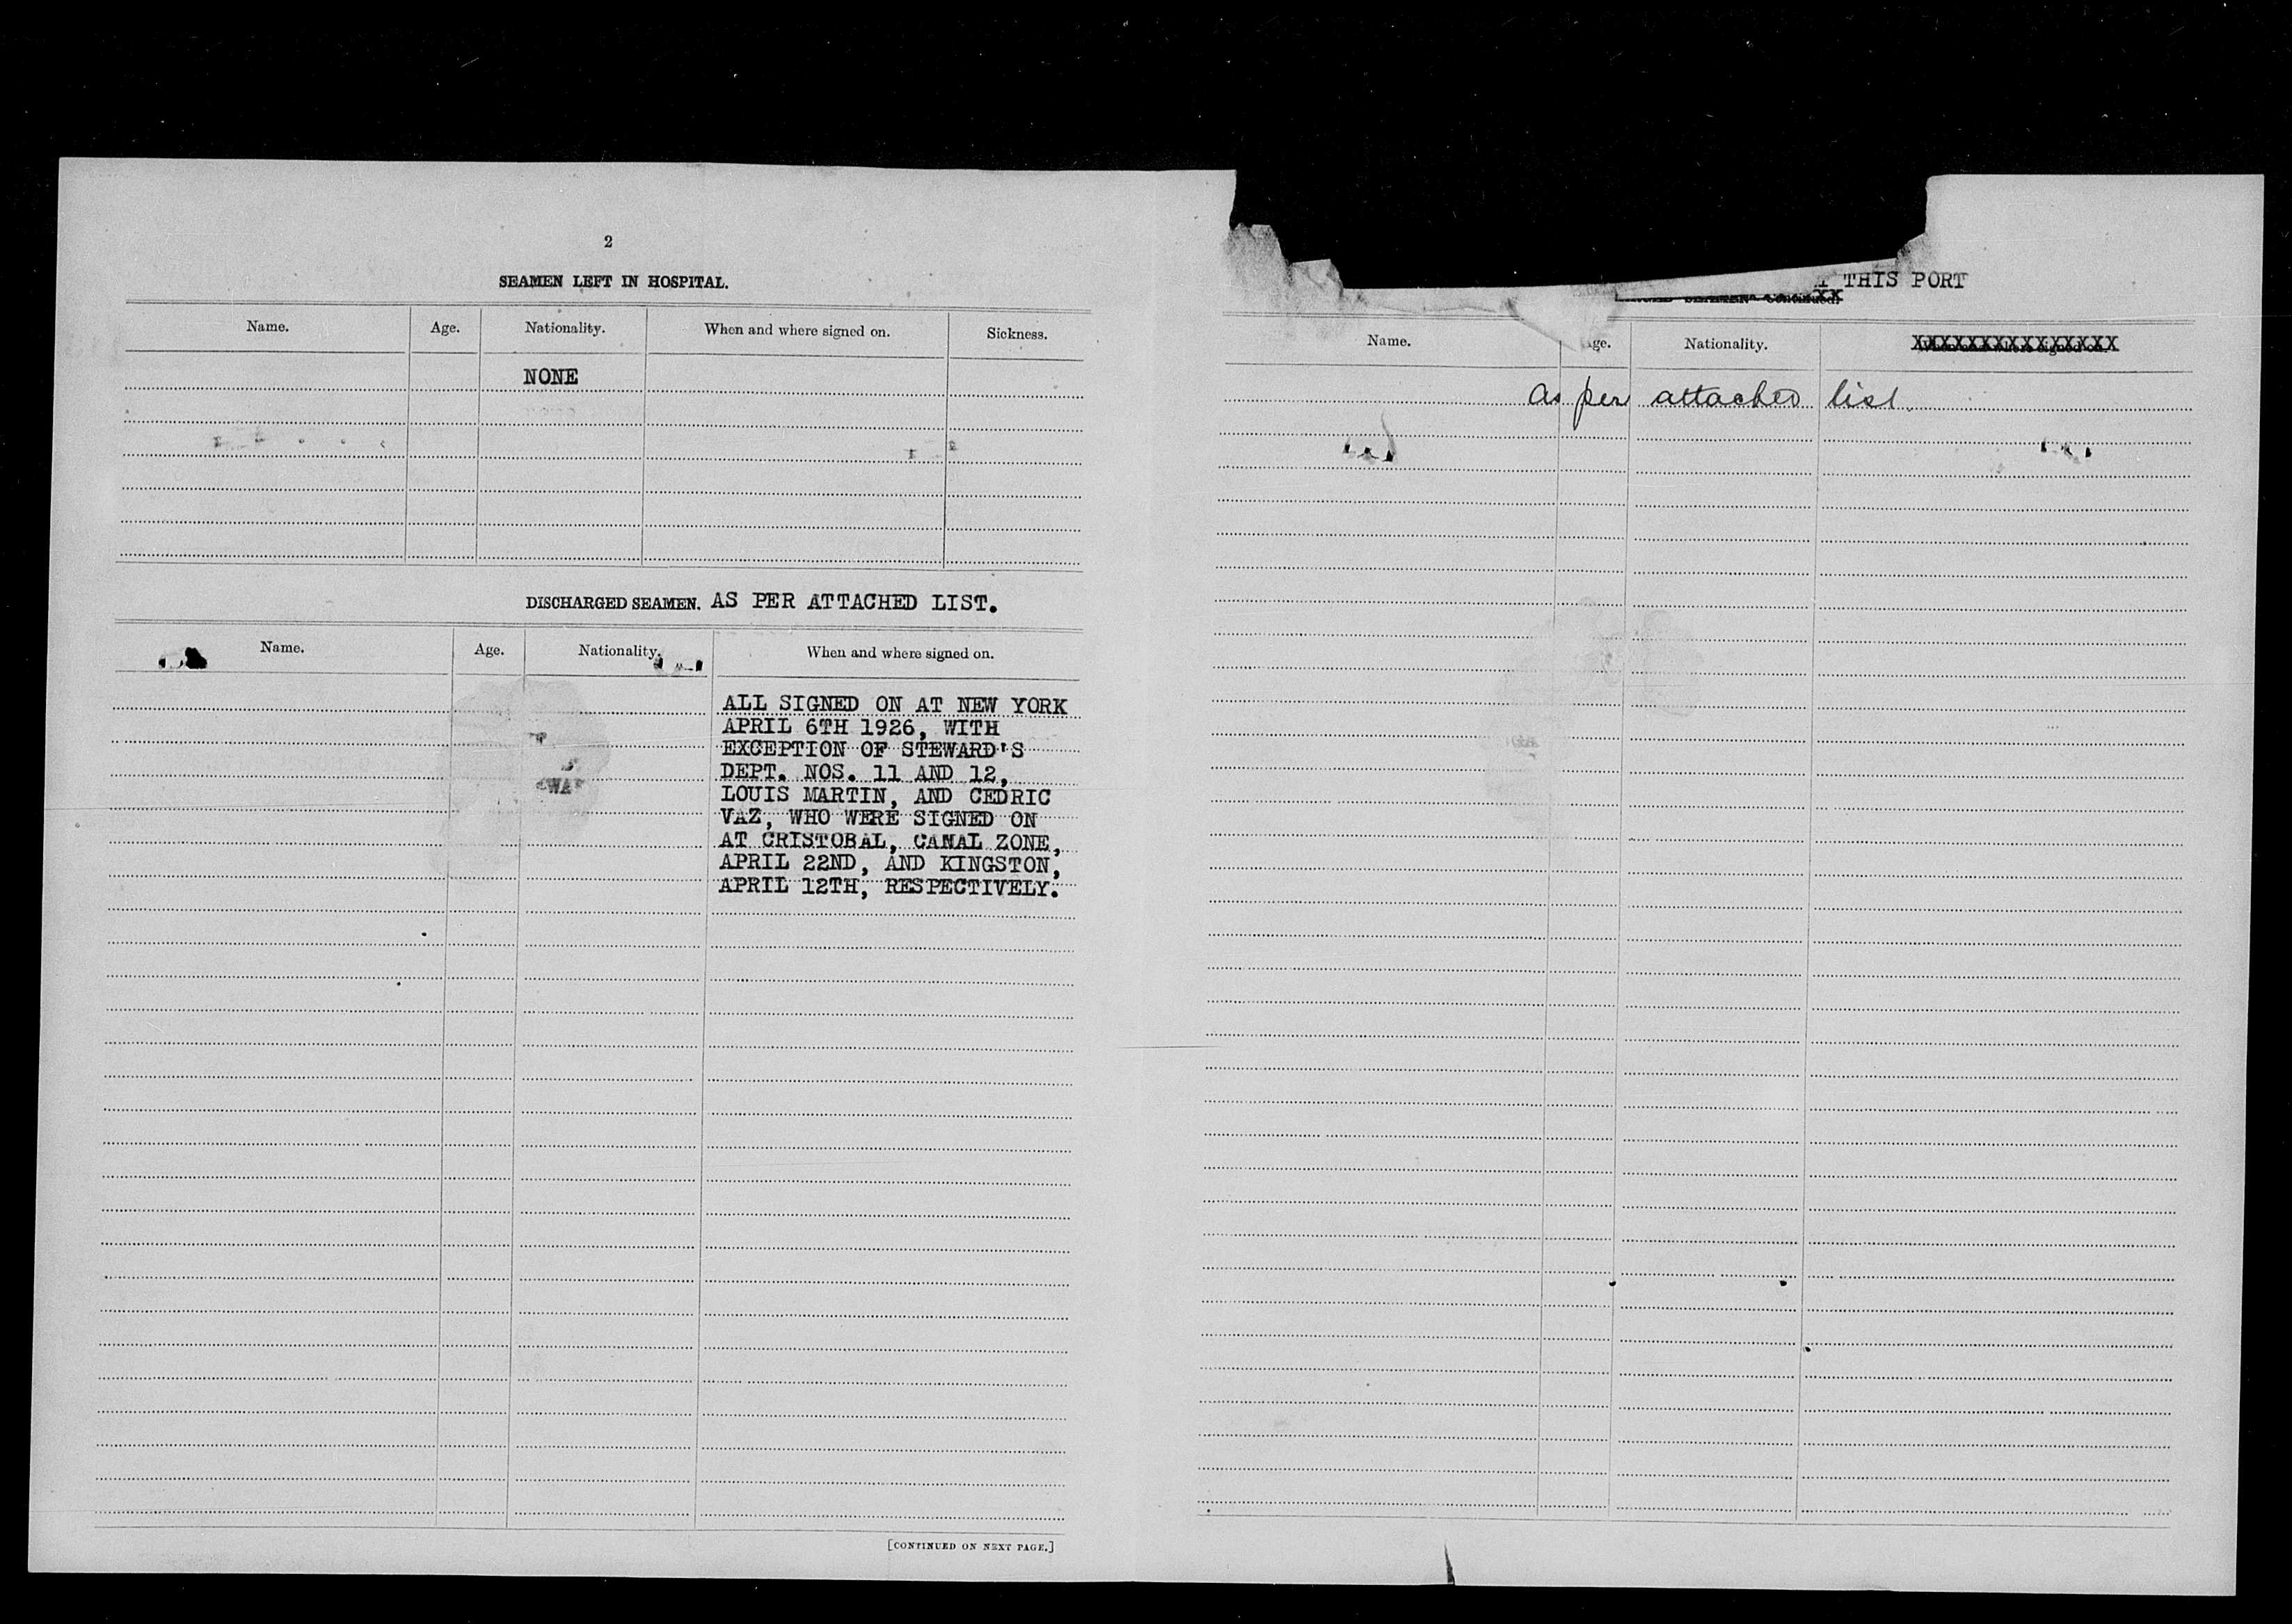 2
SEAMEN LEFT IN HOSPITAL.
Name. Age. Nationality. When and where signed on. Sickness.
NONE
DISCHARGED SEAMEN. AS PER ATTACHED LIST.
Name. Age. Nationality. When and where signed on.
ALL SIGNED ON AT NEW YORK
APRIL 6TH 1926, WITH
EXCEPTION OF STEWARD'S
DEPT. NOS. 11 AND 12,
LOUIS MARTIN, AND CEDRIC
VAZ, WHO WERE SIGNED ON
AT CRISTOBAL, CANAL ZONE,
APRIL 22ND, AND KINGSTON,
APRIL 12TH, RESPECTIVELY.
[CONTINUED ON NEXT PAGE.]
THIS PORT
Name. Nationality. XXXXXXXXXXXXXXX
As per attached list.